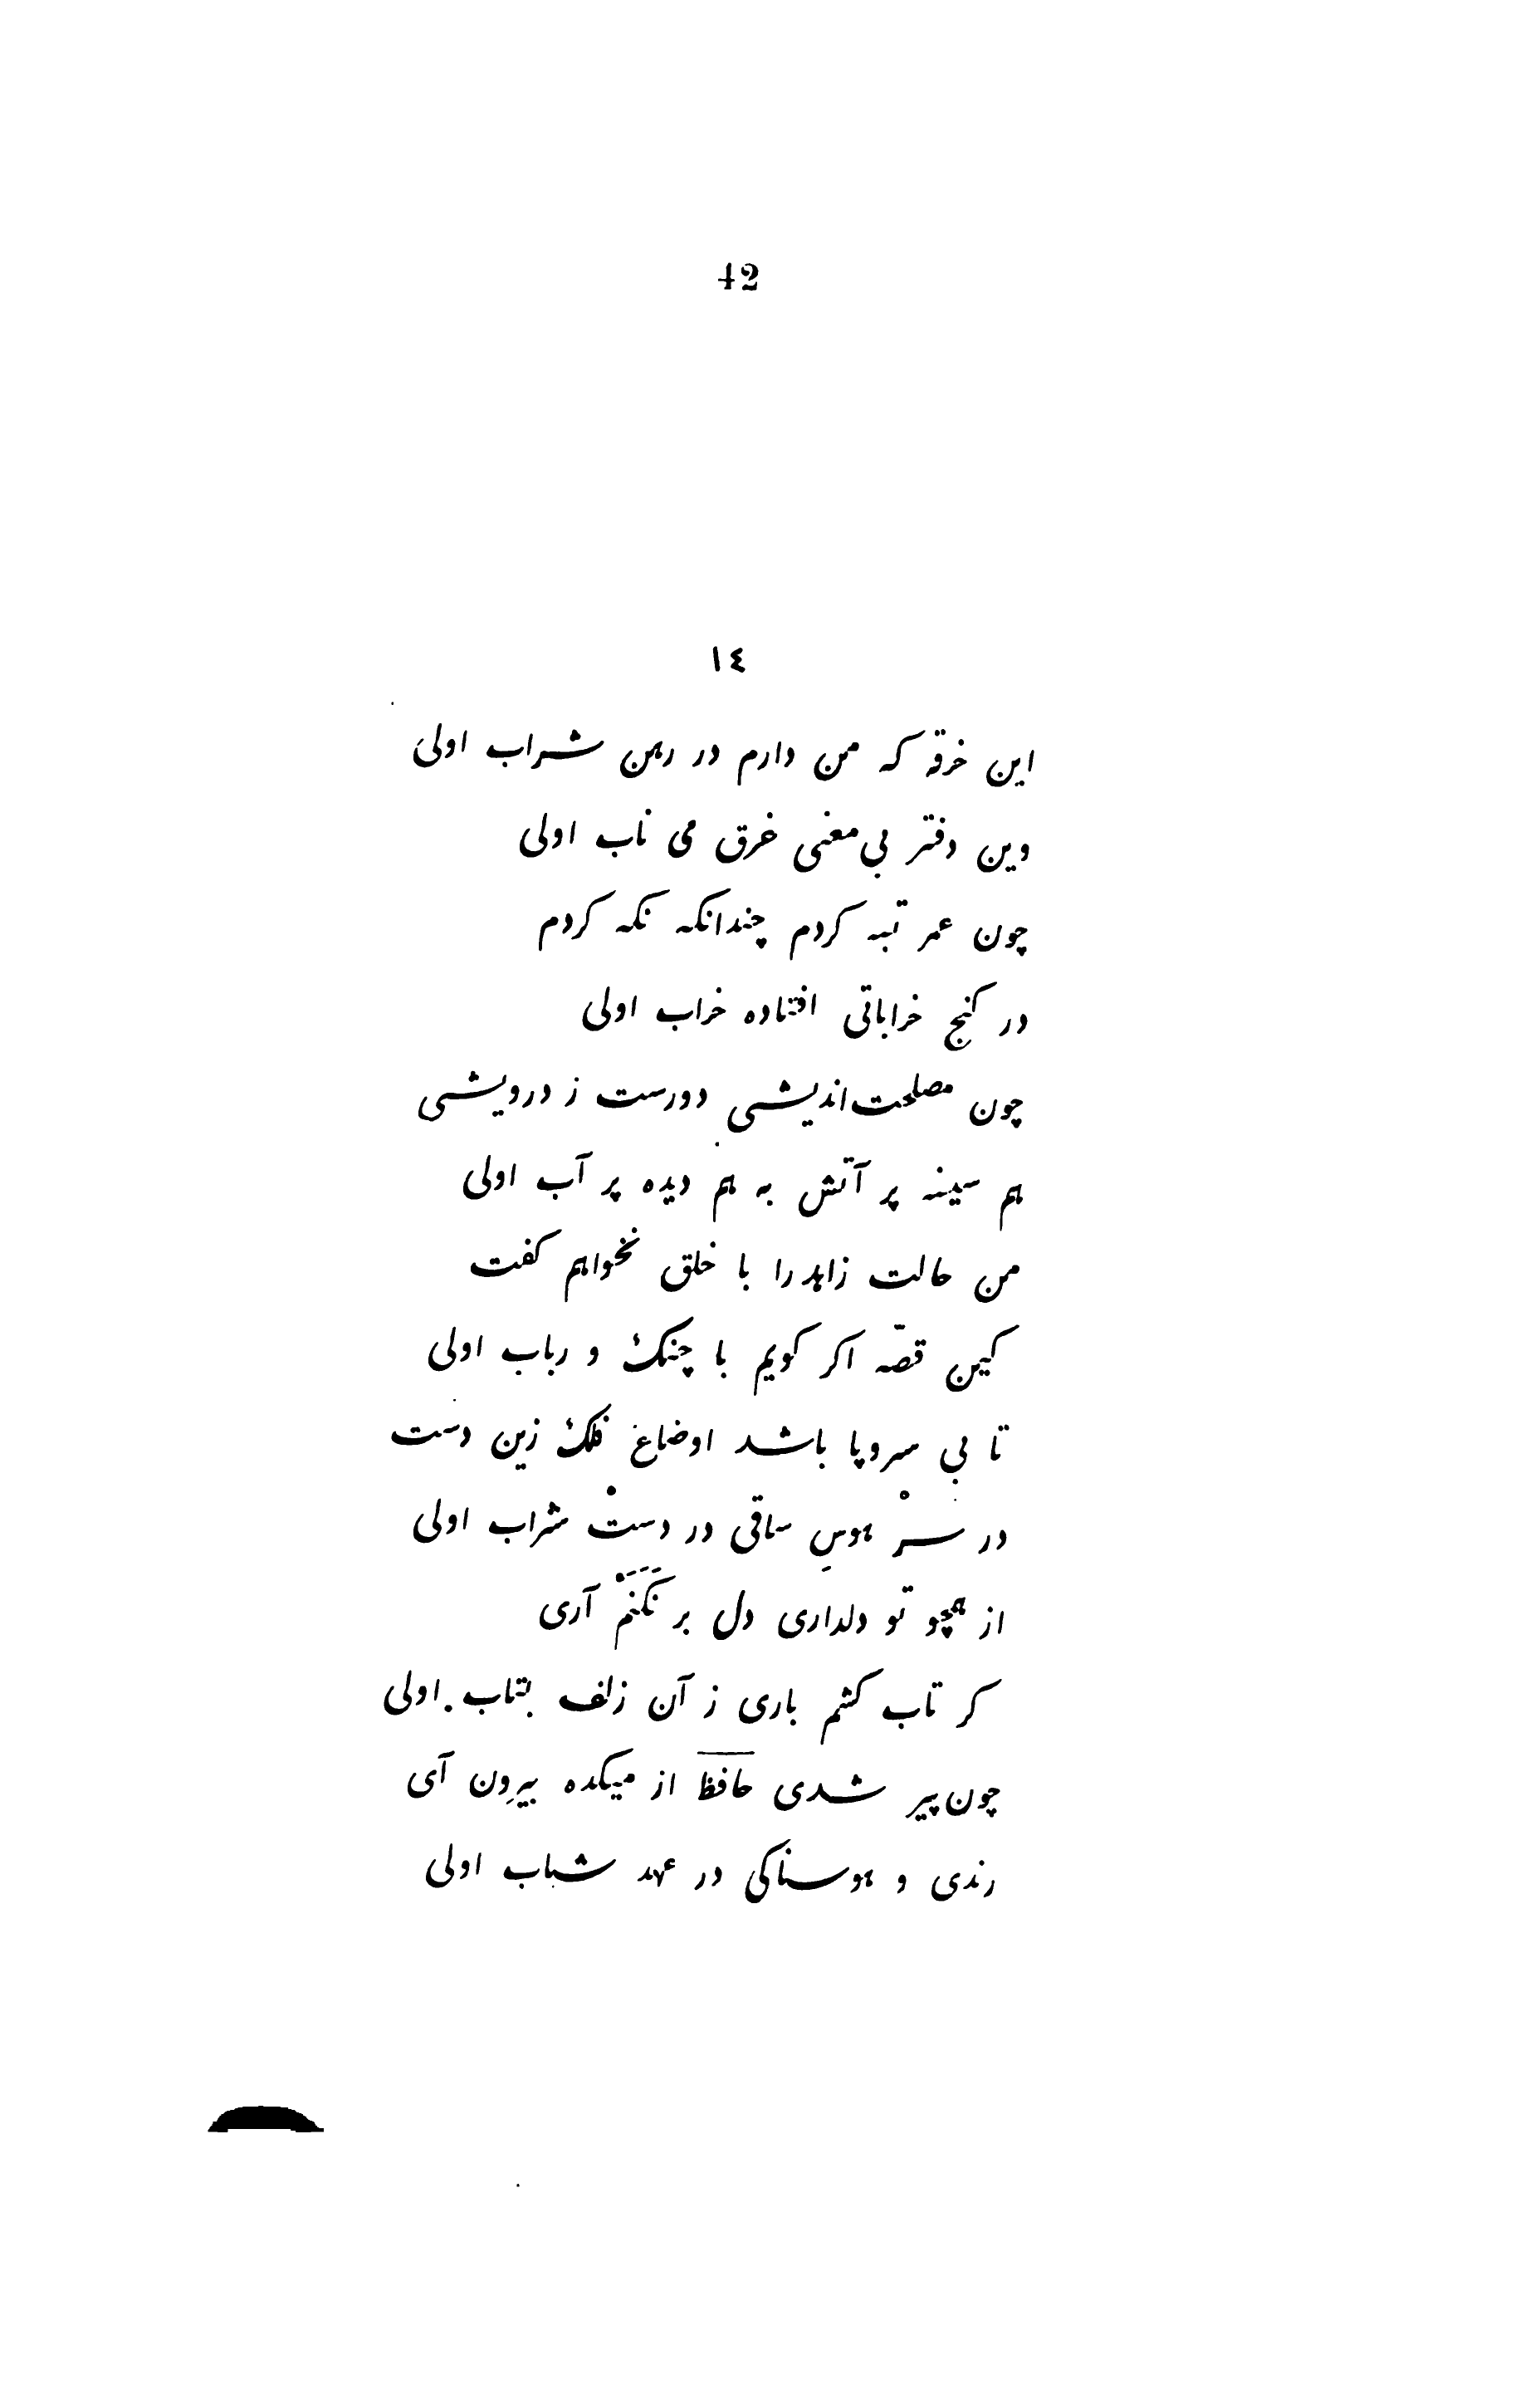 42
١٤
این خرقه که من دارم در رهن شراب اولی
وین دفتر بی‌معنی غرق می ناب اولی
چون عمر تبه کردم چندانکه نکه کردم
در کنج خراباتی افتاده خراب اولی
چون مصلحت‌اندیشی دورست ز درویشی
هم سینه پر آتش به هم دیده پر آب اولی
من حالت زاهد را با خلق نخواهم کفت
کین قصّه اکر کویم با چنک و رباب اولی
تا بی سروپا باشد اوضاع فلک زین دست
در سرْ هوسِ ساقی در دستْ شراب اولی
از همچو تو دلداری دل بر نَکَنَمْ آری
کر تاب کشم باری ز آن زلف بتاب اولی
چون پیر شدی حافظ از میکده بیرون آی
رندی و هوسناکی در عهد شباب اولی